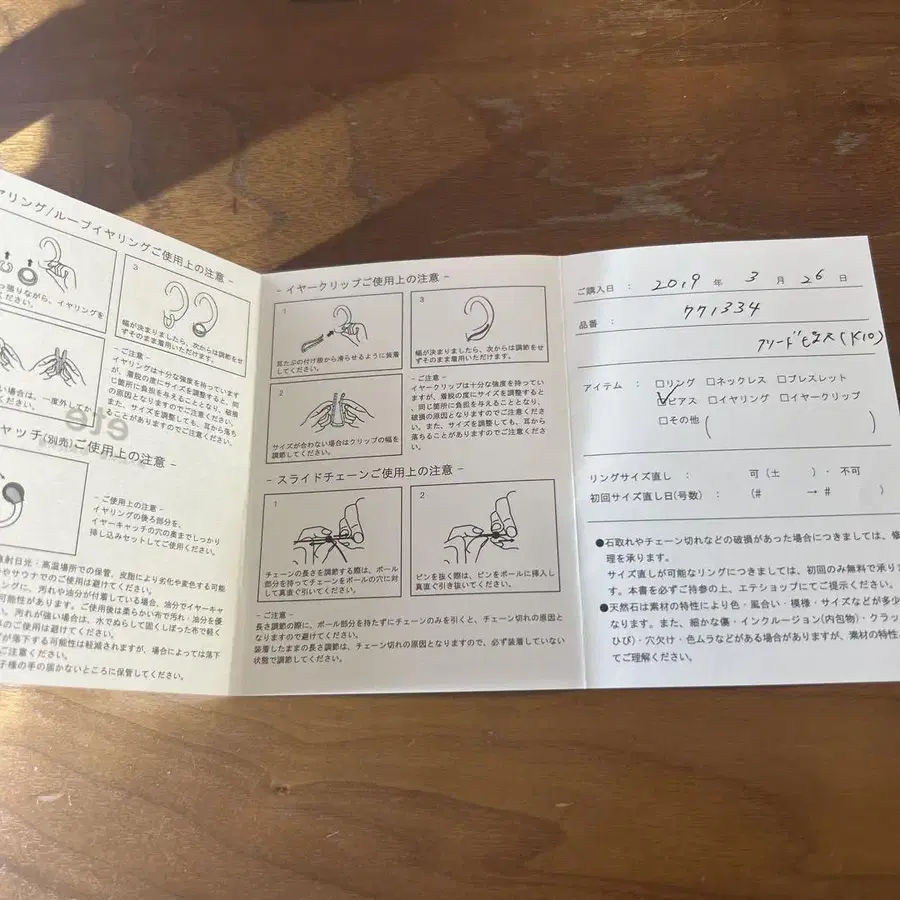 ヤリング/ループイヤリングご使用上の注意 -
っ張りながら、イヤリングを
ください。
3
幅が決まりましたら、次からは調節をせ
ずそのまま着用いただけます。
- ご注意 -
イヤリングは十分な強度を持っています
が、着脱の度にサイズを調整すると、同
じ箇所に負担を与えることとなり、破損
の原因となりますのでご注意ください。
また、サイズを調整しても、耳から落ち
ることがありますのでご注意ください。
い場合は、一度外してか
ete
ャッチ(別売)ご使用上の注意 -
- ご使用上の注意 -
イヤリングの後ろ部分を、
イヤーキャッチの穴の奥までしっかり
挿し込みセットしてご使用ください。
射日光・高温場所での保管、皮脂により劣化や変色する可能
やサウナでのご使用は避けてください。
ングに、汚れや油分が付着している場合、油分でイヤーキャ
可能性があります。ご使用後は柔らかい布で汚れ・油分を優
。汚れが強い場合は、水でぬらして固くしぼった布で軽く
のご使用は避けてください。
が落下する可能性は軽減されますが、場合によっては落下
ご注意ください。
子様の手の届かないところに保管してください。
- イヤークリップご使用上の注意 -
1
耳たぶの付け根から滑らせるように装着
してください。
3
幅が決まりましたら、次からは調節をせ
ずそのまま着用いただけます。
2
サイズが合わない場合はクリップの幅を
調節してください。
- ご注意 -
イヤークリップは十分な強度を持ってい
ますが、着脱の度にサイズを調整すると、
同じ箇所に負担を与えることとなり、
破損の原因となりますのでご注意くださ
い。また、サイズを調整しても、耳から
落ちることがありますのでご注意ください。
- スライドチェーンご使用上の注意 -
1
チェーンの長さを調節する際は、ボール
部分を持ってチェーンをボールの穴に対
して真直ぐ引いてください。
2
ピンを抜く際は、ピンをボールに挿入し
真直ぐ引き抜いてください。
- ご注意 -
長さ調節の際に、ボール部分を持たずにチェーンのみを引くと、チェーン切れの原因と
なりますので避けてください。
装着したままの長さ調節は、チェーン切れの原因となりますので、必ず装着していない
状態で調節してください。
ご購入日 : 2019 年 3 月 26 日
品番 : 771334
フリードピアス(K10)
アイテム : □リング □ネックレス □ブレスレット
□ピアス □イヤリング □イヤークリップ
□その他 ( )
リングサイズ直し : 可 (± ) ・ 不可
初回サイズ直し日(号数) : (# → # )
●石取れやチェーン切れなどの破損があった場合につきましては、修
理を承ります。
サイズ直しが可能なリングにつきましては、初回のみ無料で承りま
す。本書を必ずご持参の上、エテショップにてご提示ください。
●天然石は素材の特性により色・風合い・模様・サイズなどが多少
なります。また、細かな傷・インクルージョン(内包物)・クラッ
ひび)・穴欠け・色ムラなどがある場合がありますが、素材の特性
てご理解ください。